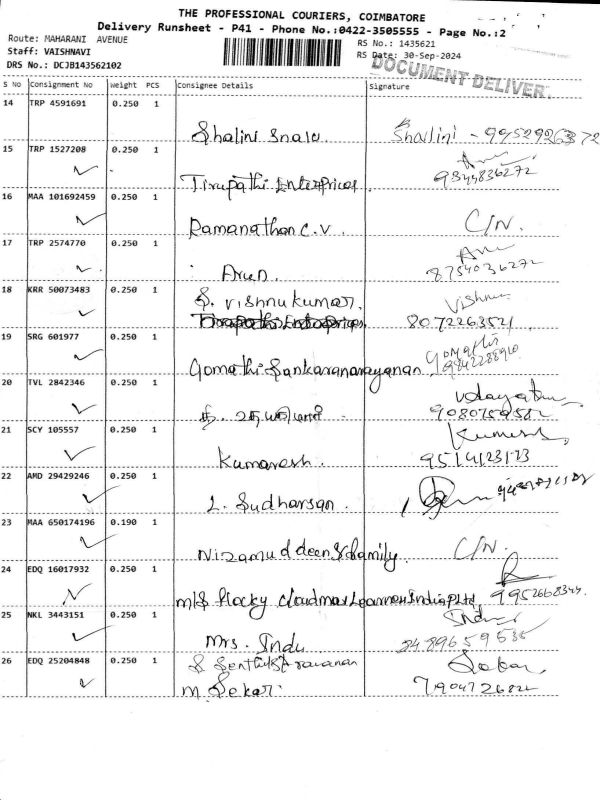 THE PROFESSIONAL COURIERS, COIMBATORE
Delivery Runsheet - P41 - Phone No.:0422-3505555 - Page No.:2
Route: MAHARANI AVENUE
Staff: VAISHNAVI
DRS No.: DCJB143562102
RS No.: 1435621
RS Date: 30-Sep-2024
DOCUMENT DELIVER
S No Consignment No Weight PCS Consignee Details Signature
14 TRP 4591691 0.250 1
Shalini Shalini - 9952926372
15 TRP 1527208 0.250 1
Tirupathi Enterprices 9344836272
16 MAA 101692459 0.250 1
Ramanathan C.V. C/N.
17 TRP 2574770 0.250 1
Arun. 8754036272
18 KRR 50073483 0.250 1
S. Vishnu kumar. Vishnu
Tirupathi Enterprices 8072263521
19 SRG 601977 0.250 1
Gomathi Sankaranarayanan Gomathi 9842288960
20 TVL 2842346 0.250 1
9080759582
21 SCY 105557 0.250 1
Kumaresh. 9514123123
22 AMD 29429246 0.250 1
L. Sudharsan.
23 MAA 650174196 0.190 1
Nizamuddeen & family C/N.
24 EDQ 16017932 0.250 1
M/S Rocky Cloudmax Learners India P Ltd 9952668344
25 NKL 3443151 0.250 1
Mrs. Indu Indu 8489659535
26 EDQ 25204848 0.250 1
S Senthil Saravanan
M Sekar 7904726822